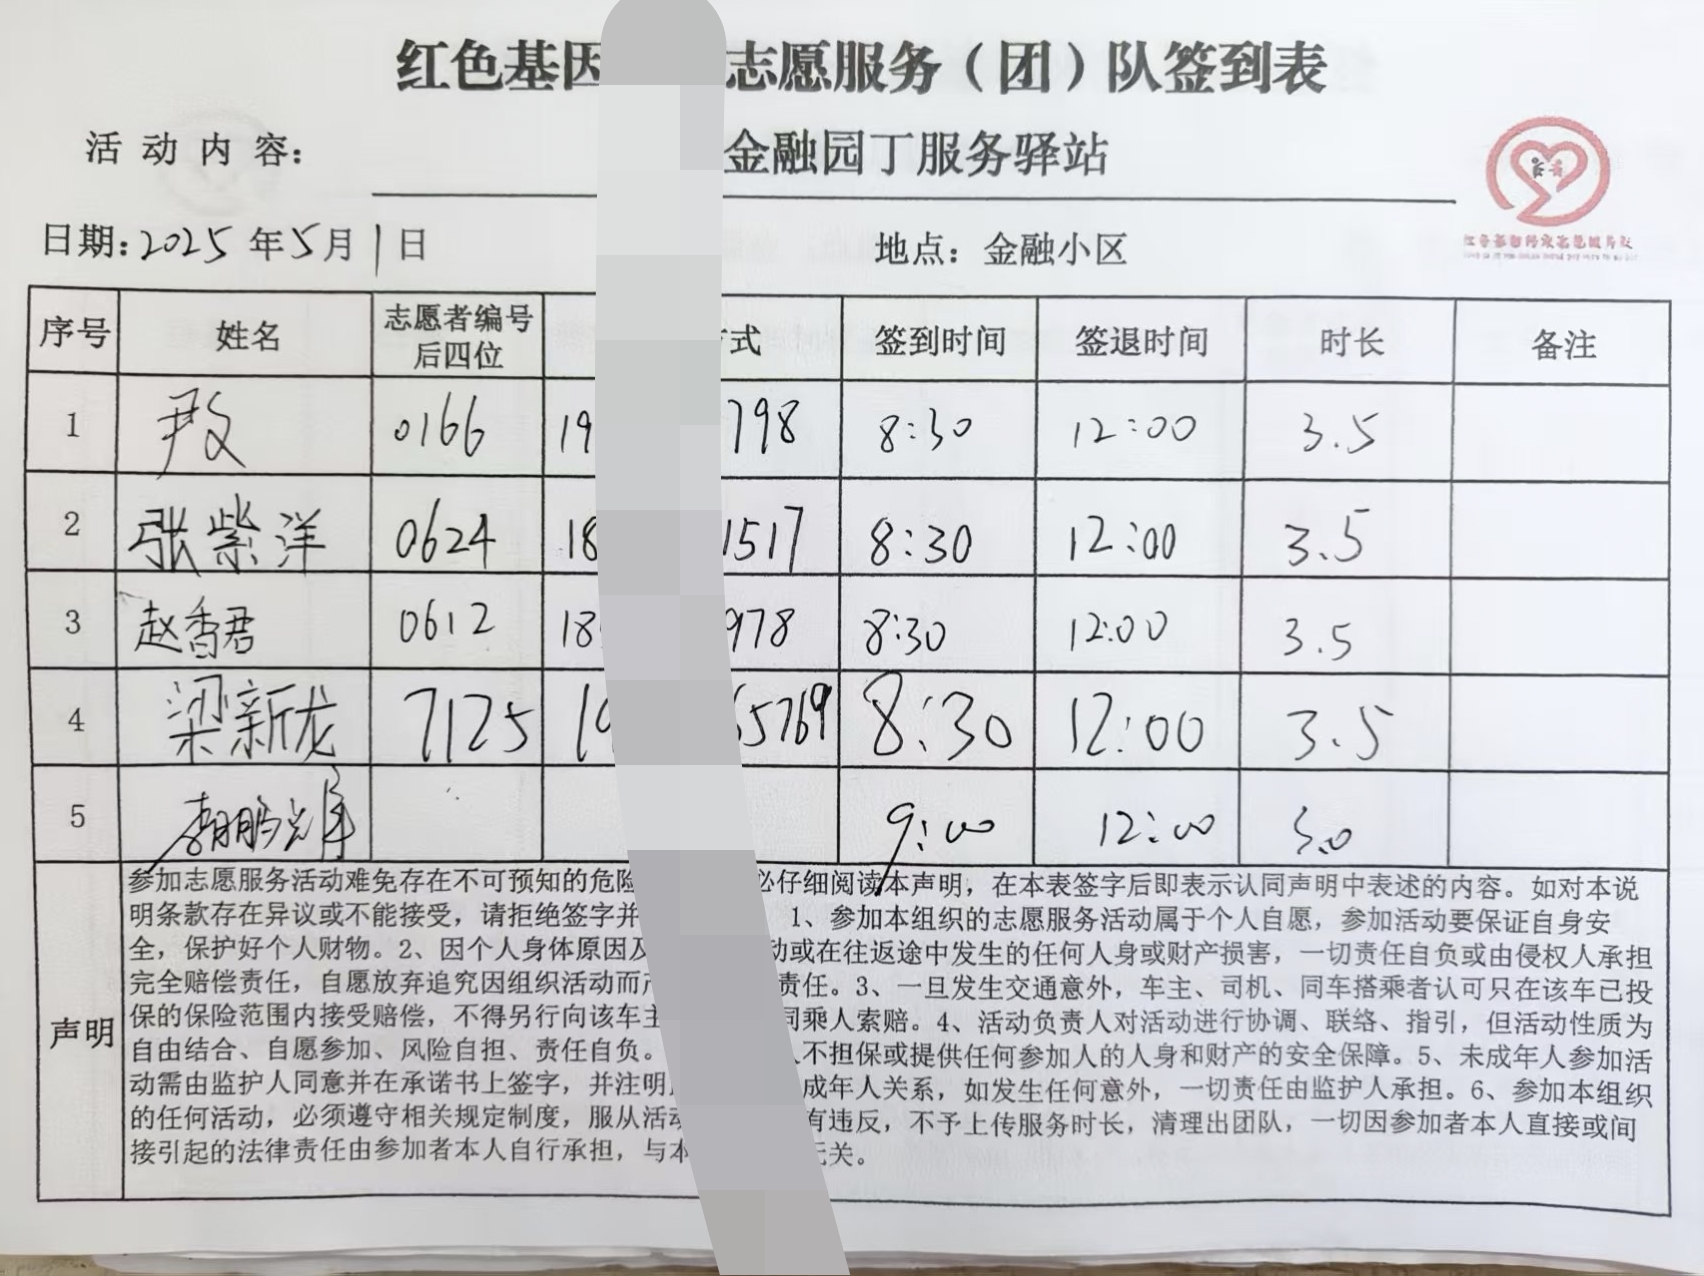 红色基因 志愿服务（团）队签到表
活动内容： 金融园丁服务驿站
日期：2025年5月1日 地点：金融小区
序号 姓名 志愿者编号后四位 式 签到时间 签退时间 时长 备注
1 尹文 0166 19 798 8:30 12:00 3.5
2 张紫洋 0624 18 1517 8:30 12:00 3.5
3 赵香君 0612 18 978 8:30 12:00 3.5
4 梁新龙 7125 19 5769 8:30 12:00 3.5
5 9:00 12:00 3.0
声明
参加志愿服务活动难免存在不可预知的危险 必仔细阅读本声明，在本表签字后即表示认同声明中表述的内容。如对本说
明条款存在异议或不能接受，请拒绝签字并 1、参加本组织的志愿服务活动属于个人自愿，参加活动要保证自身安
全，保护好个人财物。2、因个人身体原因及 动或在往返途中发生的任何人身或财产损害，一切责任自负或由侵权人承担
完全赔偿责任，自愿放弃追究因组织活动而 责任。3、一旦发生交通意外，车主、司机、同车搭乘者认可只在该车已投
保的保险范围内接受赔偿，不得另行向该车主 同乘人索赔。4、活动负责人对活动进行协调、联络、指引，但活动性质为
自由结合、自愿参加、风险自担、责任自负。 人不担保或提供任何参加人的人身和财产的安全保障。5、未成年人参加活
动需由监护人同意并在承诺书上签字，并注明 成年人关系，如发生任何意外，一切责任由监护人承担。6、参加本组织
的任何活动，必须遵守相关规定制度，服从活动 有违反，不予上传服务时长，清理出团队，一切因参加者本人直接或间
接引起的法律责任由参加者本人自行承担，与本 无关。